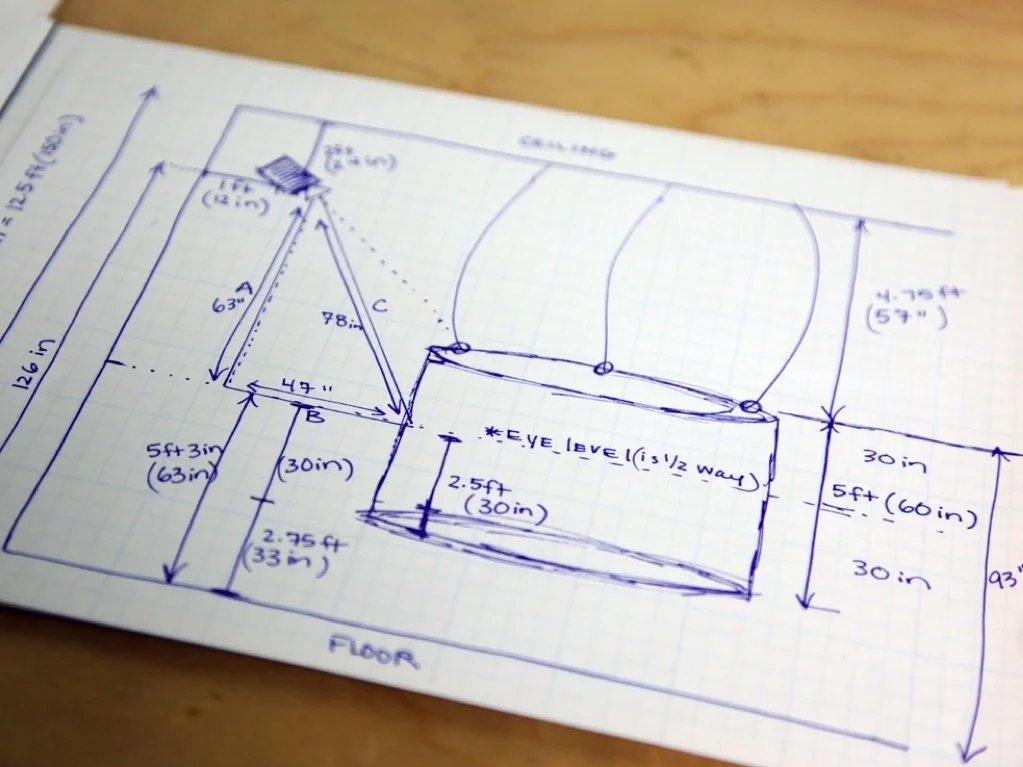 = 12.5ft (150in)
126in
2ft
(24in)
1ft
(12in)
A
63"
C
78in
47"
B
4.75ft
(57")
*EYE level (is 1/2 way)
5ft 3in
(63in)
(30in)
2.75ft
(33in)
2.5ft
(30in)
30in
5ft (60in)
30in
93"
FLOOR